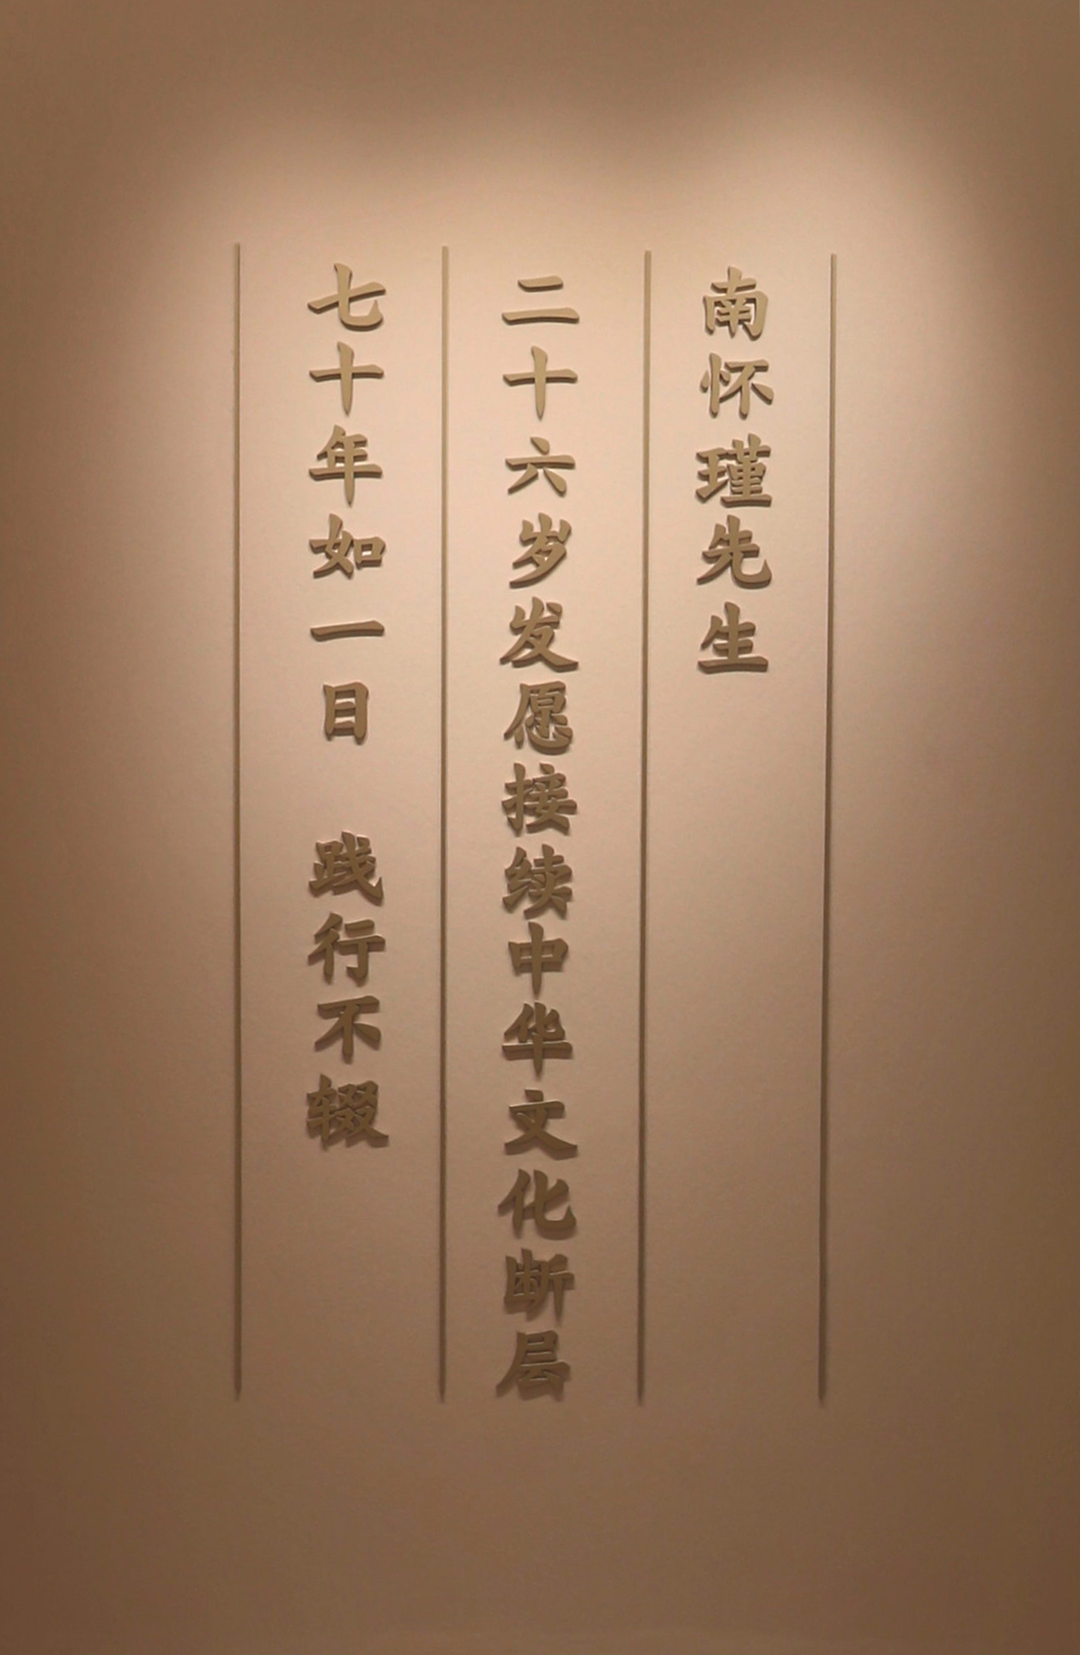 南怀瑾先生
二十六岁发愿接续中华文化断层
七十年如一日 践行不辍